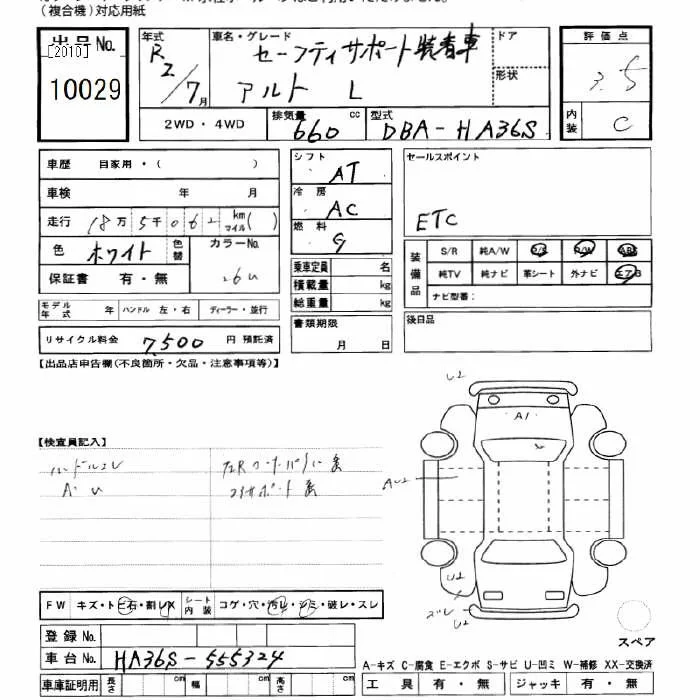 (複合機)対応用紙
出品No.
[2010]
10029
年式
R2/7月
車名・グレード
セーフティサポート装着車
アルト L
ドア
形状
評価点
3.5
内装
C
2WD・4WD
排気量
660
cc
型式
DBA-HA36S
車歴 自家用・( )
車検 年 月
走行 18万5千062 km マイル( )
色 ホワイト 色替
カラーNo.
26U
保証書 有・無
シフト
AT
冷房
AC
燃料
G
セールスポイント
ETC
乗車定員 名
積載量 kg
総重量 kg
装備品
S/R 純A/W P/S P/W ABS
純TV 純ナビ 革シート 外ナビ エアB
ナビ型番:
モデル年式 年 ハンドル 左・右 ディーラー・並行
リサイクル料金 7,500 円 預託済
書類期限
月 日
後日品
【出品店申告欄(不良箇所・欠品・注意事項等)】
【検査員記入】
ハンドルスレ
U2
A1
AU2
U2
U2
スペア
FW キズ・トビ石・割レX
シート内装 コゲ・穴・汚レ・シミ・破レ・スレ
登録No.
車台No. HA36S-555324
車庫証明用 長さ cm 幅 cm 高さ cm
A-キズ C-腐食 E-エクボ S-サビ U-凹ミ W-補修 XX-交換済
工具 有・無 ジャッキ 有・無